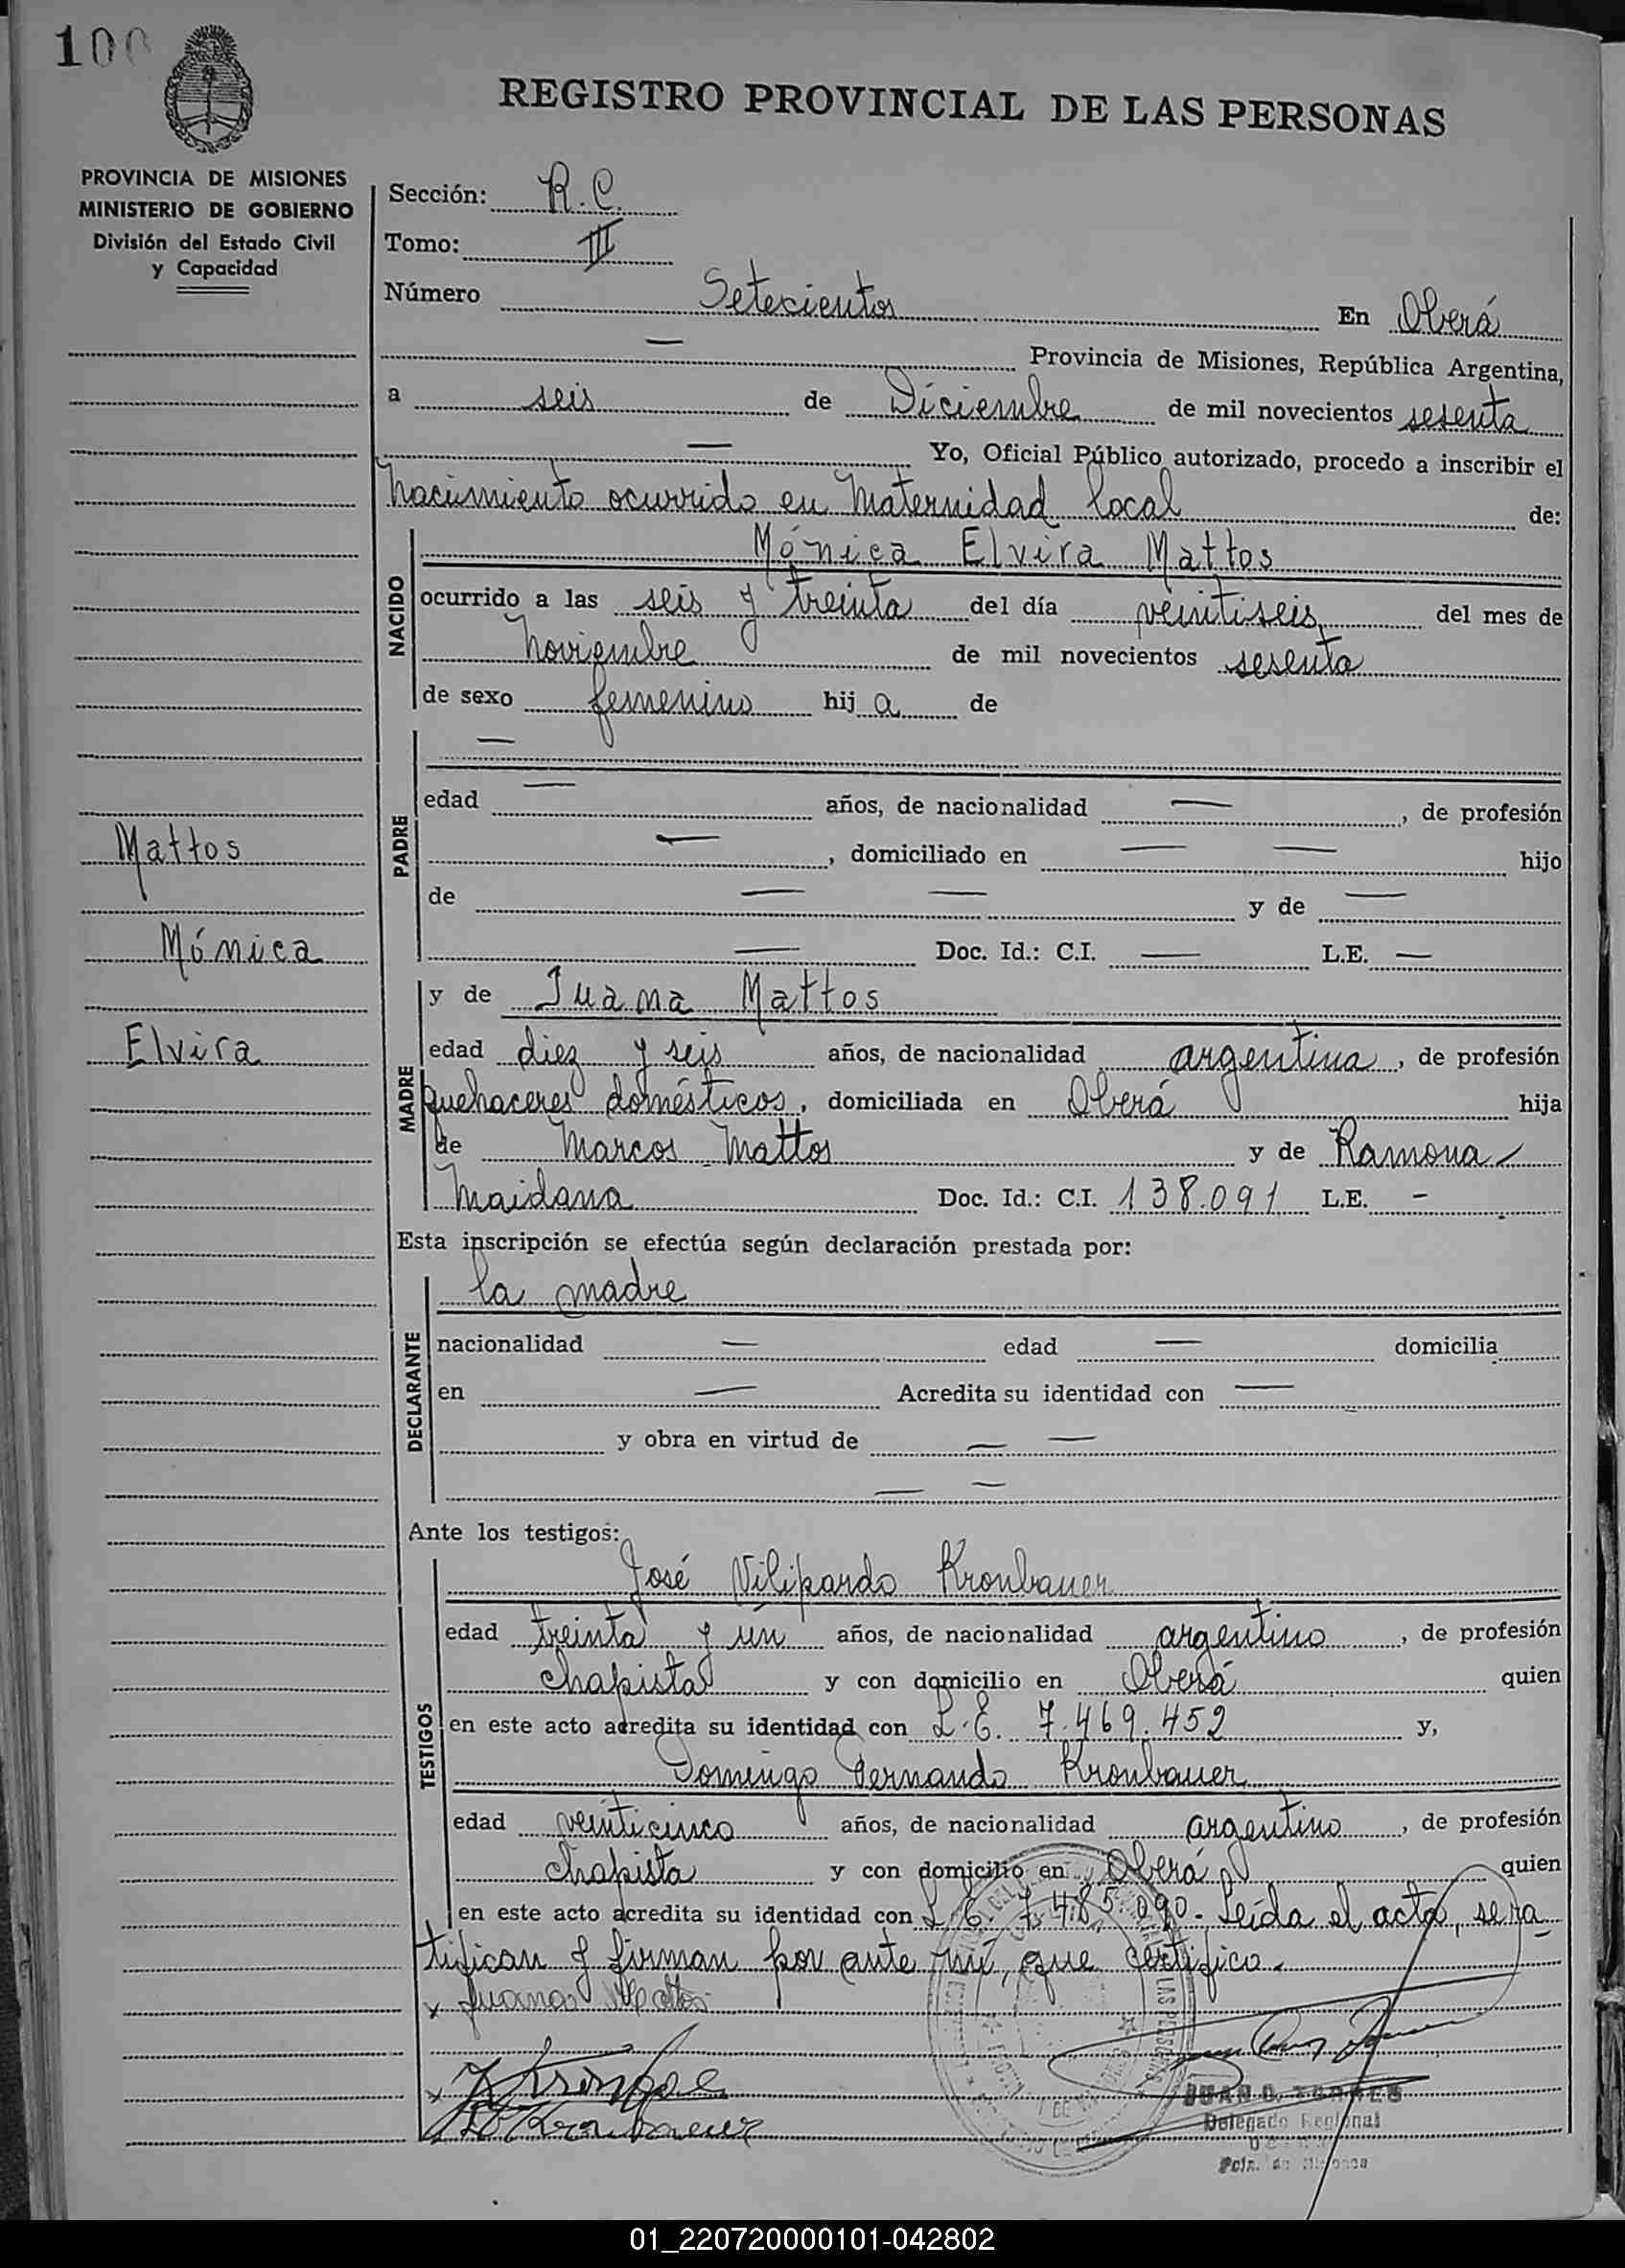 100
REGISTRO PROVINCIAL DE LAS PERSONAS
PROVINCIA DE MISIONES
MINISTERIO DE GOBIERNO
División del Estado Civil
y Capacidad
Sección: R. C.
Tomo: III
Número Setecientos En Oberá
— Provincia de Misiones, República Argentina,
a seis de Diciembre de mil novecientos sesenta
— Yo, Oficial Público autorizado, procedo a inscribir el
Nacimiento ocurrido en Maternidad local de:
NACIDO
Mónica Elvira Mattos
ocurrido a las seis y treinta del día veintiseis del mes de
Noviembre de mil novecientos sesenta
de sexo femenino hij a de
PADRE
—
edad — años, de nacionalidad — , de profesión
— , domiciliado en — — hijo
de — — y de —
— Doc. Id.: C.I. — L.E. —
Mattos
Mónica
Elvira
MADRE
y de Juana Mattos
edad diez y seis años, de nacionalidad argentina , de profesión
quehaceres domésticos , domiciliada en Oberá hija
de Marcos Mattos y de Ramona
Maidana Doc. Id.: C.I. 138.091 L.E. -
Esta inscripción se efectúa según declaración prestada por:
DECLARANTE
la madre
nacionalidad — edad — domicilia
en — Acredita su identidad con —
y obra en virtud de — —
— —
Ante los testigos:
TESTIGOS
José Kronbauer
edad treinta y un años, de nacionalidad argentino , de profesión
chapista y con domicilio en Oberá quien
en este acto acredita su identidad con L. E. 7.469.452 y,
Domingo Fernando Kronbauer
edad veinticinco años, de nacionalidad argentino , de profesión
chapista y con domicilio en Oberá quien
en este acto acredita su identidad con L. E. 7.485.090- Leída el acta, se ra
tifican y firman por ante mí, que certifico.
x Juana Mattos
Kronbauer
JUAN TORRES
Delegado Regional
Pcia. de Misiones
01_220720000101-042802